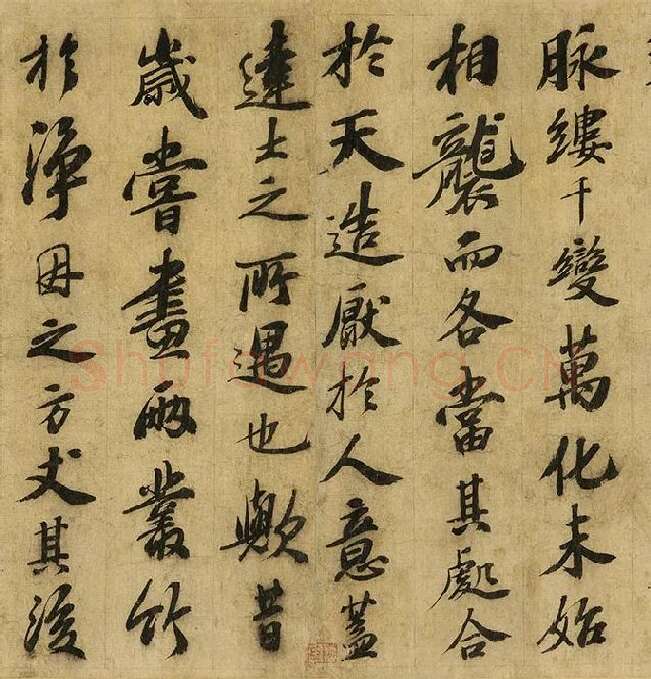 脉縷千變萬化未始
相襲而各當其處合
於天造厭於人意蓋
達士之所遇也歟昔
歲嘗畫兩叢竹
於淨因之方丈其後
Shufawang.CN